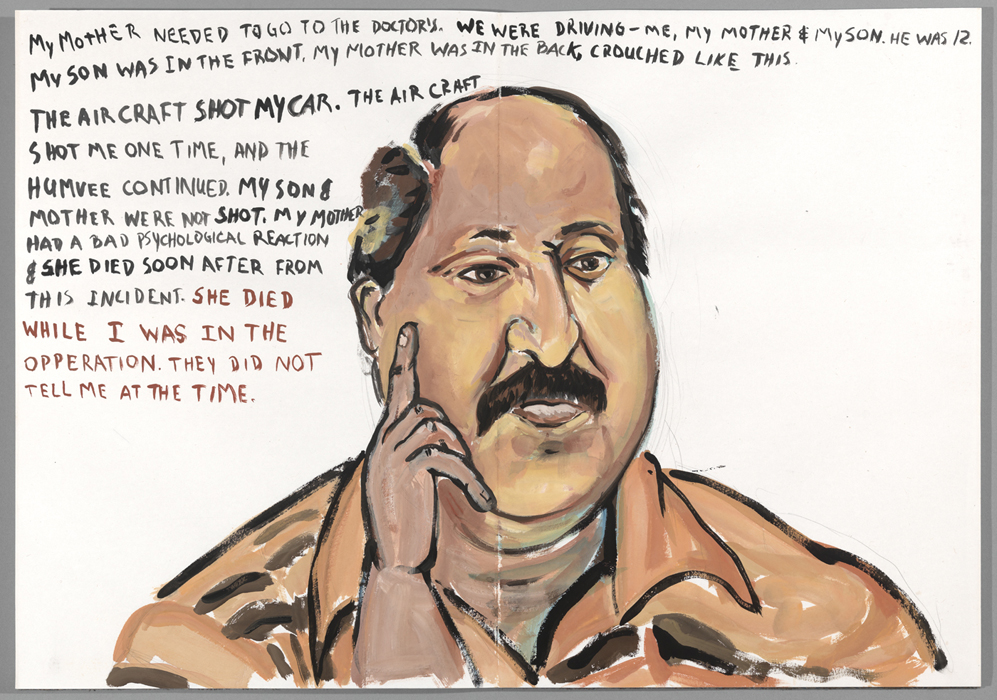 My MOTHER NEEDED TO GO TO THE DOCTOR'S. WE WERE DRIVING - ME, MY MOTHER & MY SON. HE WAS 12.
MY SON WAS IN THE FRONT. MY MOTHER WAS IN THE BACK, CROUCHED LIKE THIS.
THE AIRCRAFT SHOT MY CAR. THE AIRCRAFT
SHOT ME ONE TIME, AND THE
HUMVEE CONTINUED. MY SON &
MOTHER WERE NOT SHOT. MY MOTHER
HAD A BAD PSYCHOLOGICAL REACTION
& SHE DIED SOON AFTER FROM
THIS INCIDENT. SHE DIED
WHILE I WAS IN THE
OPPERATION. THEY DID NOT
TELL ME AT THE TIME.